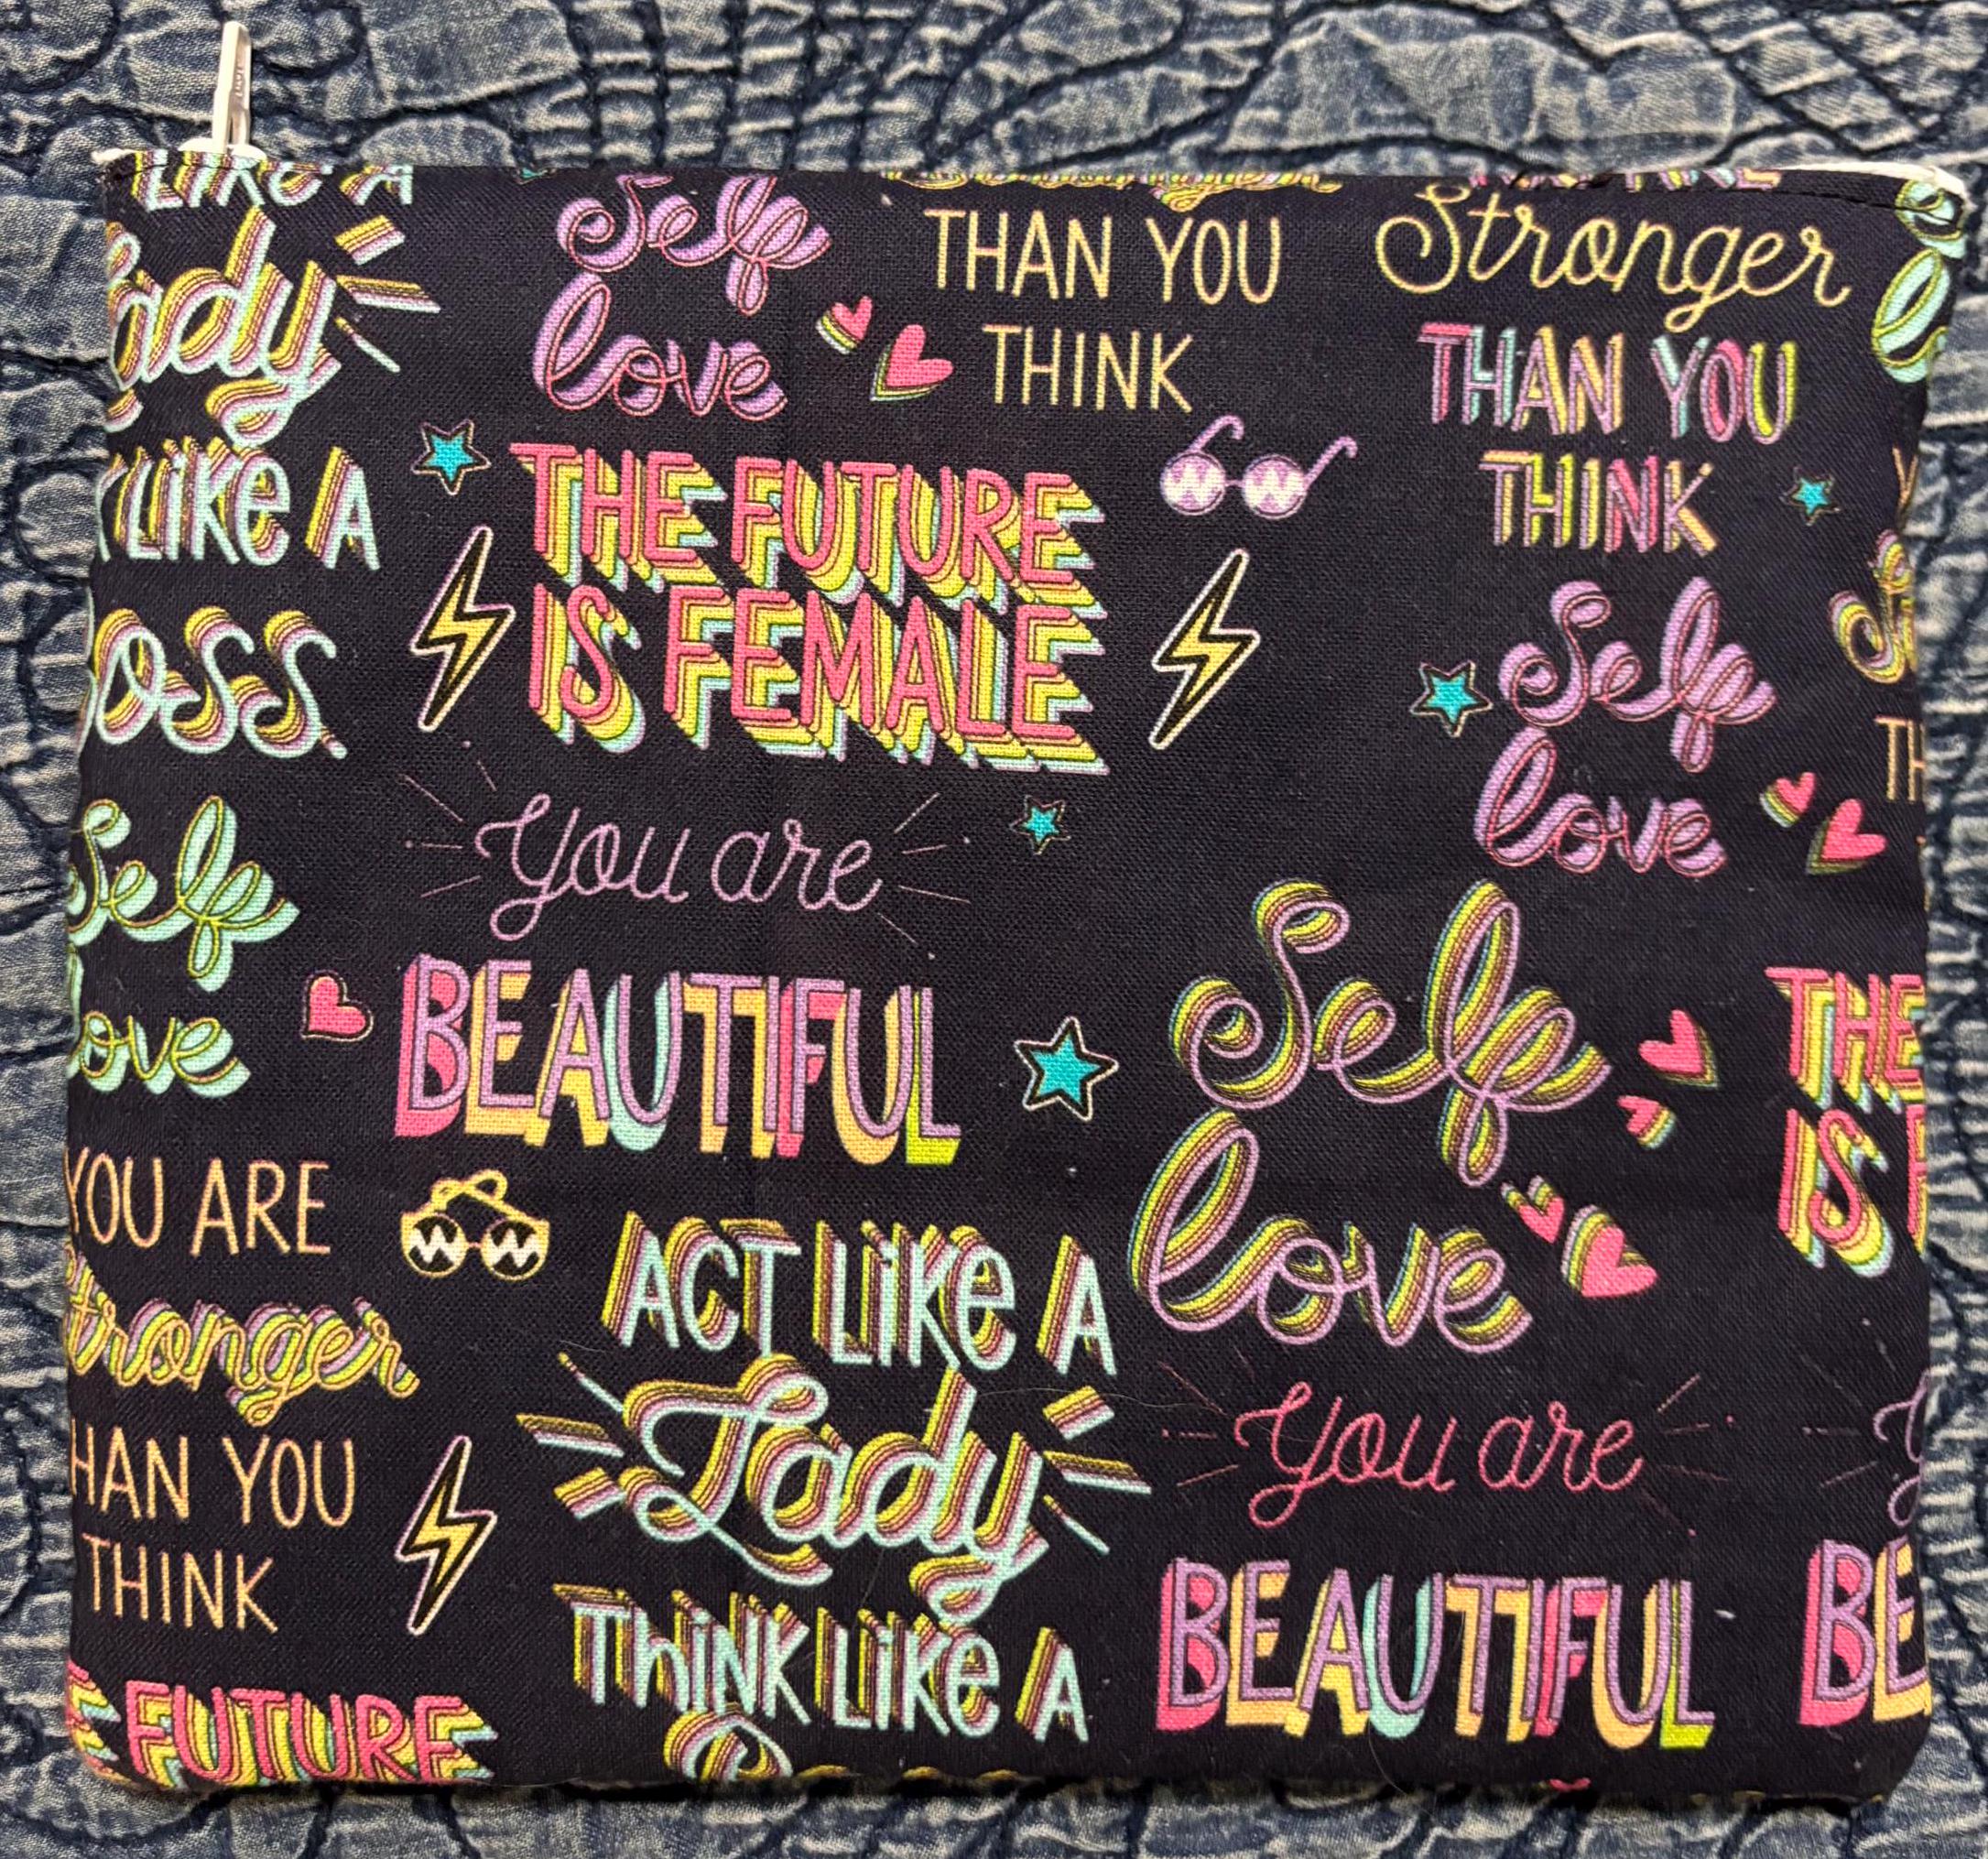 LIKE A
Lady
LIKE A
Self
love
THAN YOU
THINK
Stronger
THAN YOU
THINK
THE FUTURE
IS FEMALE
Self
love
Self
love
You are
BEAUTIFUL
Self
love
THE
IS
YOU ARE
Stronger
THAN YOU
THINK
ACT LIKE A
Lady
THINK LIKE A
You are
BEAUTIFUL
FUTURE